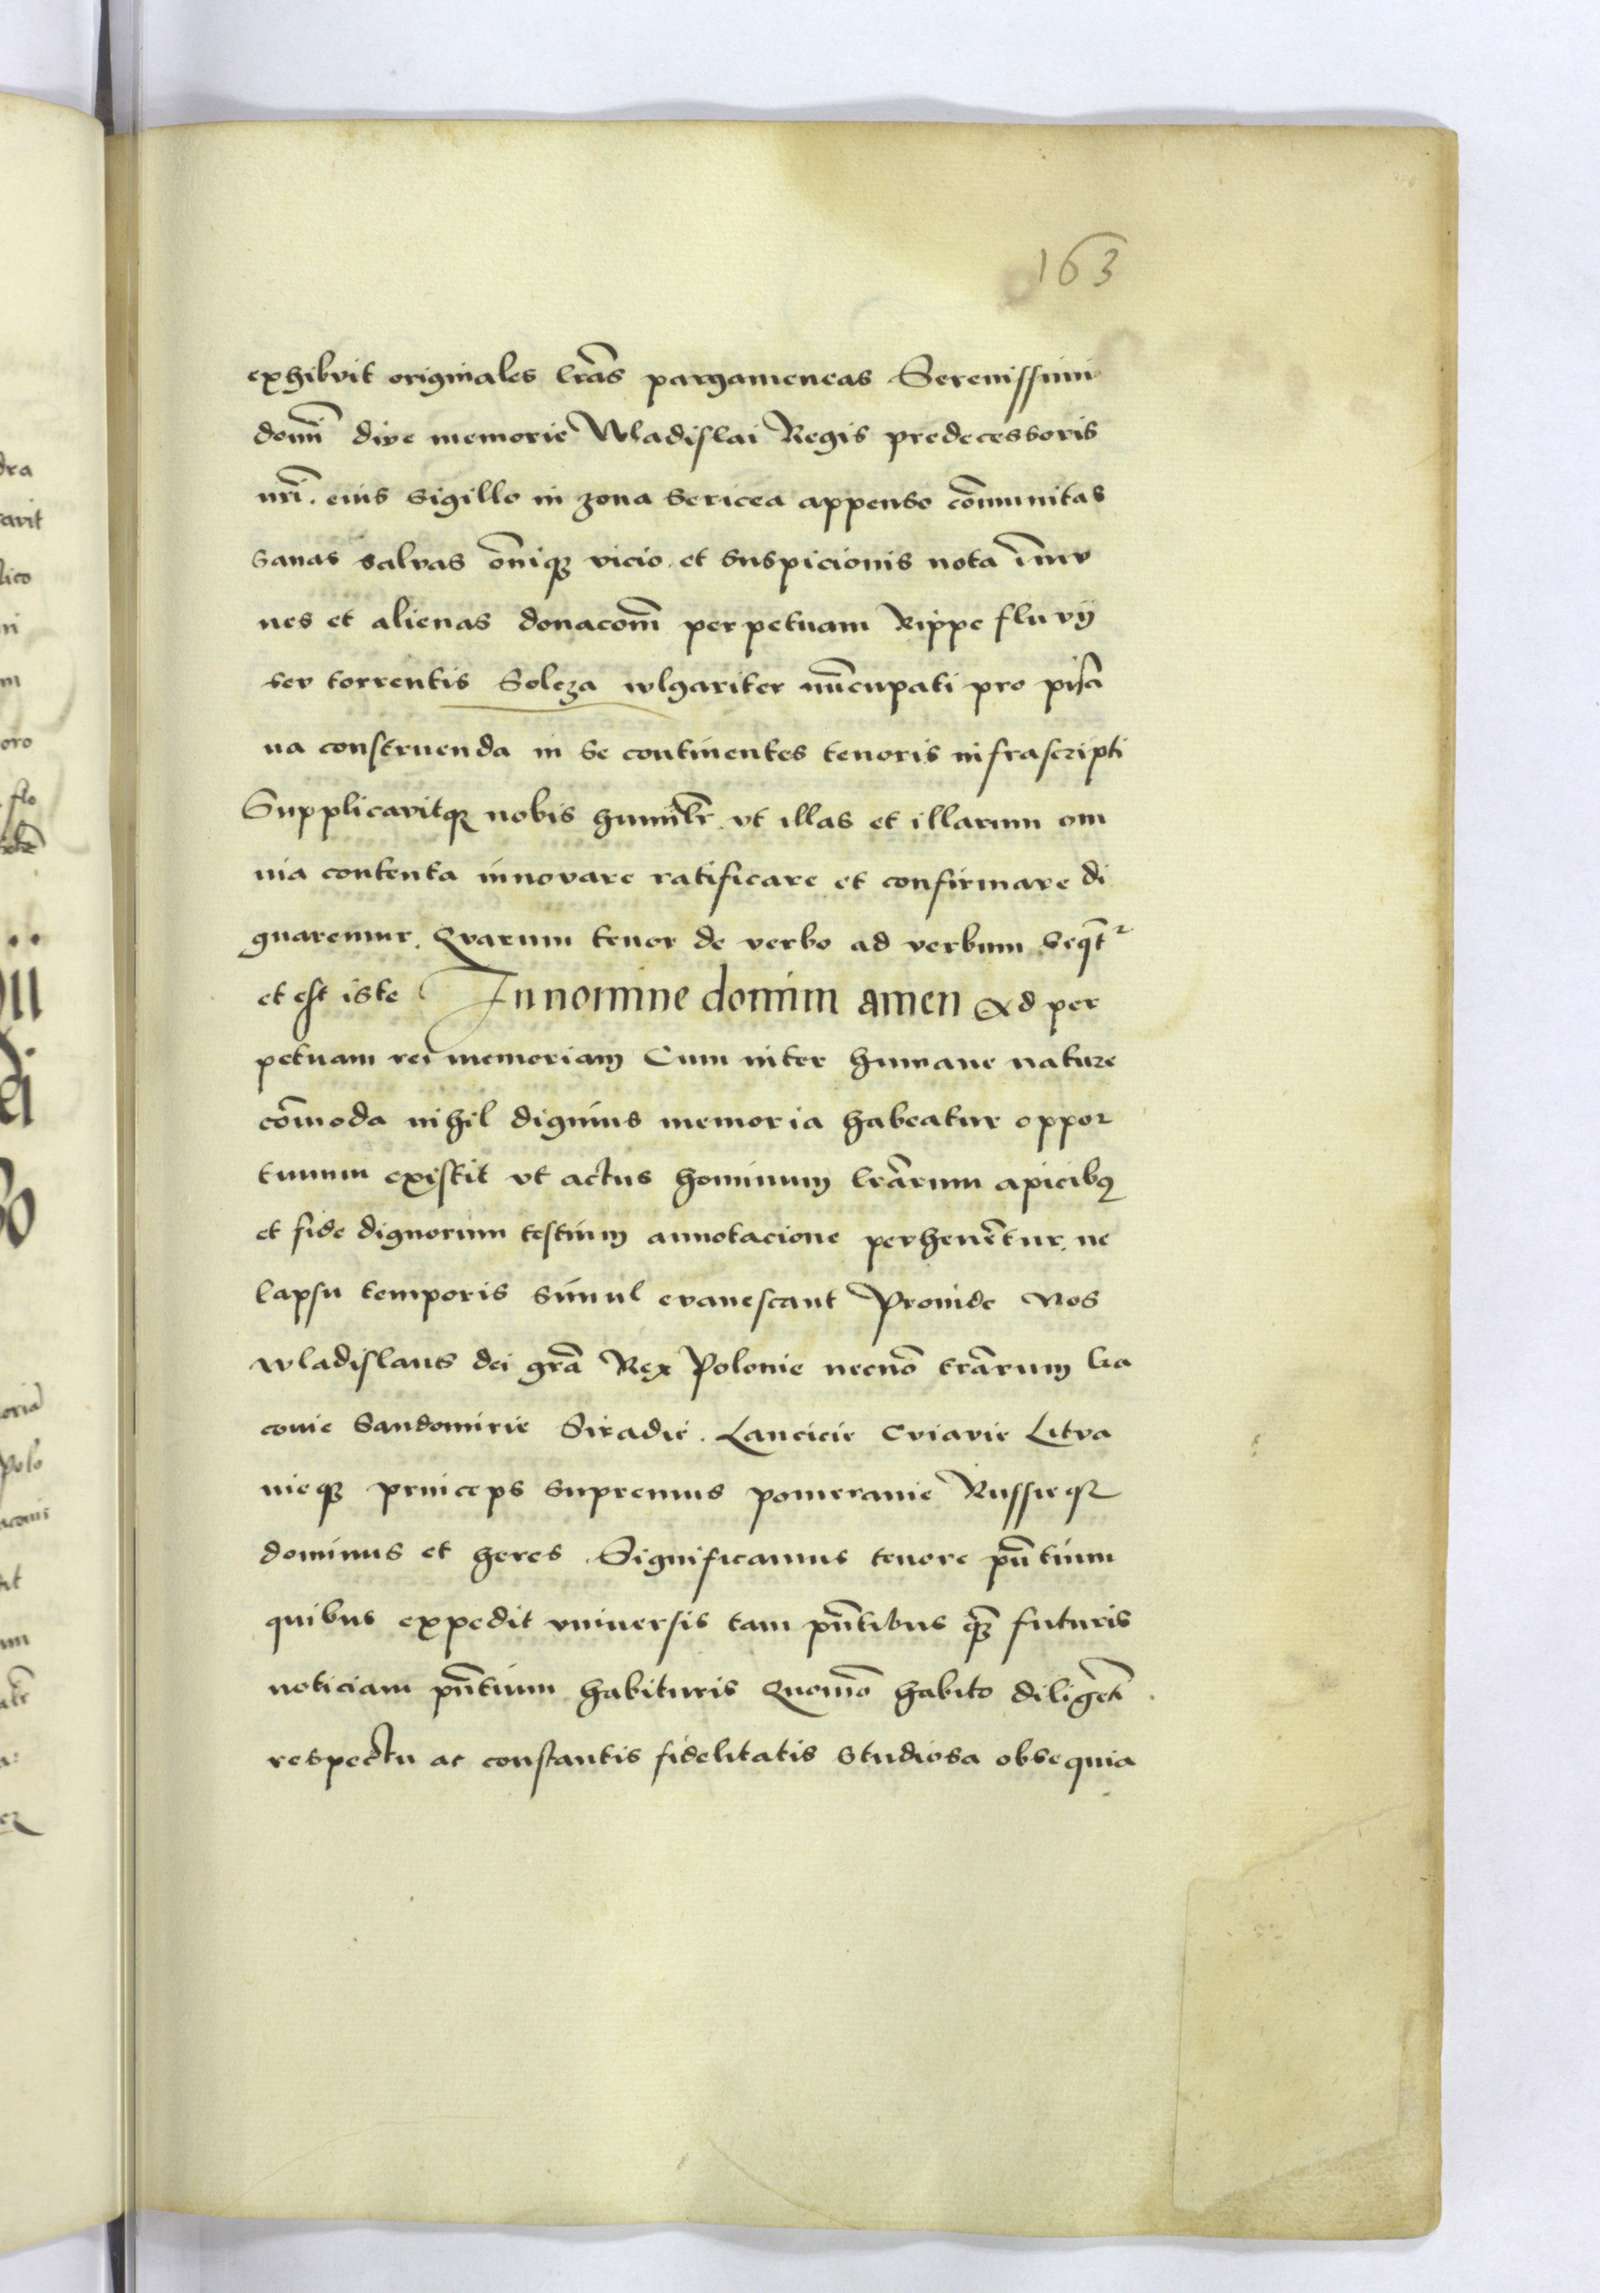 163
exhibuit originales lr̄as pargameneas Serenissimi
domī dive memorie Wladislai Regis predecessoris
nrī. eius sigillo in zona sericea appenso cōmunitas
sanas salvas om̄iqꝫ vicio et suspicionis nota īmu
nes et alienas donacom̄ perpetuam Rippe fluvij
seu torrentis Soleza wlgariter nūcupati pro pisci
na construenda in se continentes tenoris infrascripti
Supplicavitqꝫ nobis humilr̄ ut illas et illarum om
nia contenta innovare ratificare et confirmare di
gnaremur. Quarum tenor de verbo ad verbum seqt̄ʳ
et est iste In nomine domini amen Ad per
petuam rei memoriam Cum inter humane nature
cōmoda nihil dignius memoria habeatur oppor
tunum existit ut actus hominum lr̄arum apicibꝫ
et fide dignorum testium annotacione perhennētur. ne
lapsu temporis simul evanescant Proinde Nos
wladislaus dei gr̄a Rex Polonie necnō tr̄arum Cra
covie Sandomirie Siradie. Lancicie Cuiavie Litua
nieqꝫ princeps supremus pomeranie Russieqꝫ
dominus et heres. Significamus tenore pn̄tium
quibus expedit universis tam pn̄tibus qꝫ̄ futuris
noticiam pn̄tium habituris Quomō habito diligēti
respectu ac constantis fidelitatis studiosa obsequia